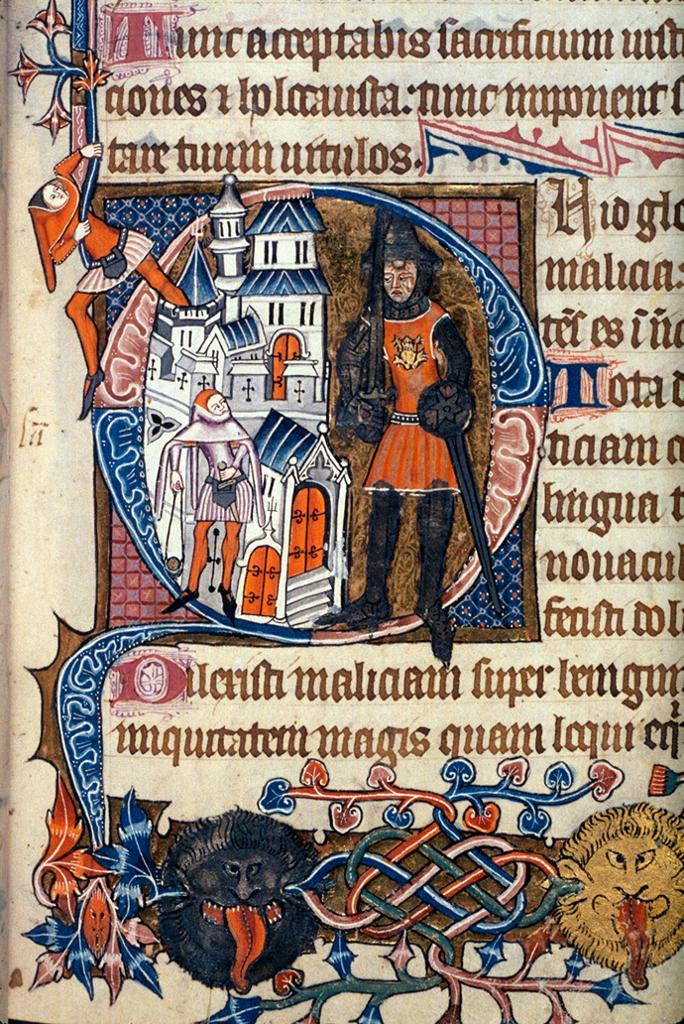 Tunc acceptabis sacrificium iusti
ciones ⁊ holocausta: tunc imponent s
tare tuum uitulos.
Uid glo
malicia:
Tota d
ticiam c
lingua t
nouacul
fecisti dol
Dilexisti maliciam super benign
iniquitatem magis quam loqui eq